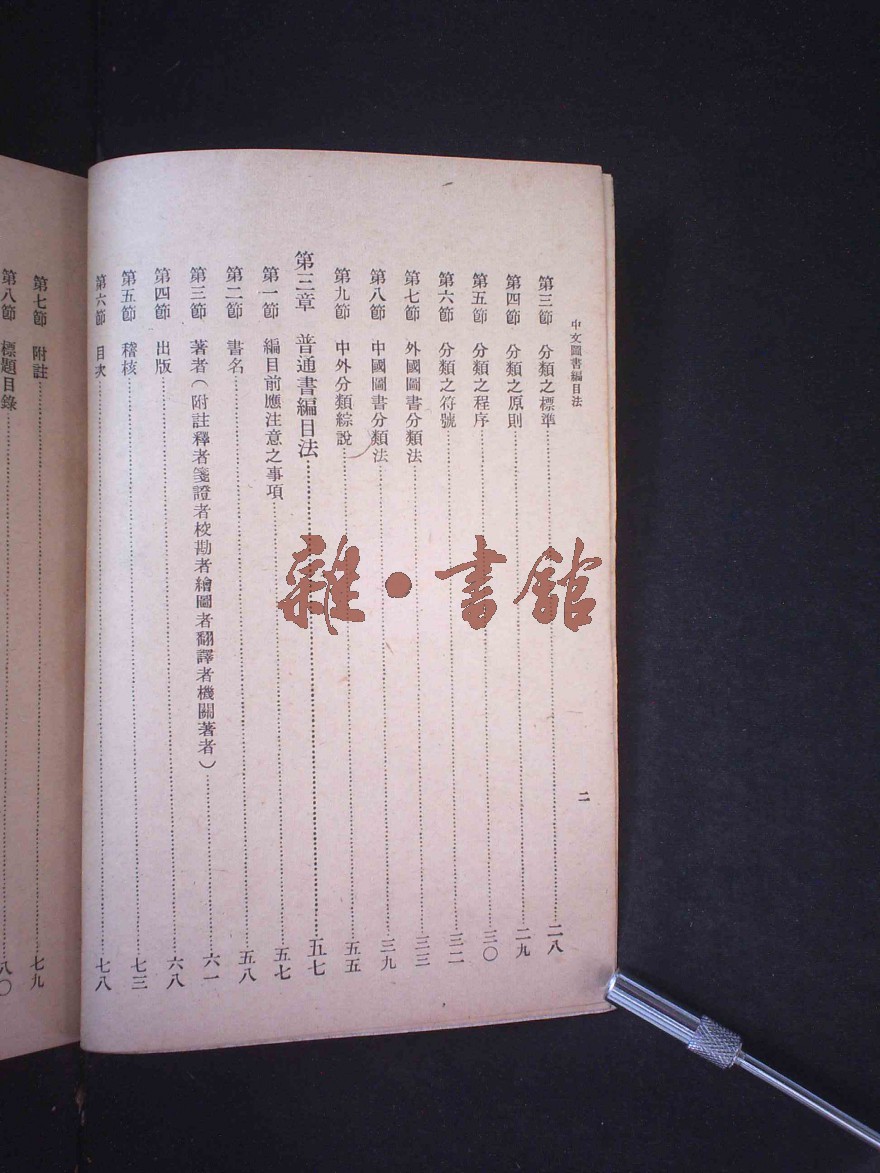 中文圖書編目法
二
第三節 分類之標準……二八
第四節 分類之原則……二九
第五節 分類之程序……三〇
第六節 分類之符號……三二
第七節 外國圖書分類法……三三
第八節 中國圖書分類法……三九
第九節 中外分類綜說……五五
第三章 普通書編目法……五七
第一節 編目前應注意之事項……五七
第二節 書名……五八
第三節 著者(附註釋者箋證者校勘者繪圖者翻譯者機關著者)……六一
第四節 出版……六八
第五節 稽核……七三
第六節 目次……七八
第七節 附註……七九
第八節 標題目錄……八〇
雜·書館